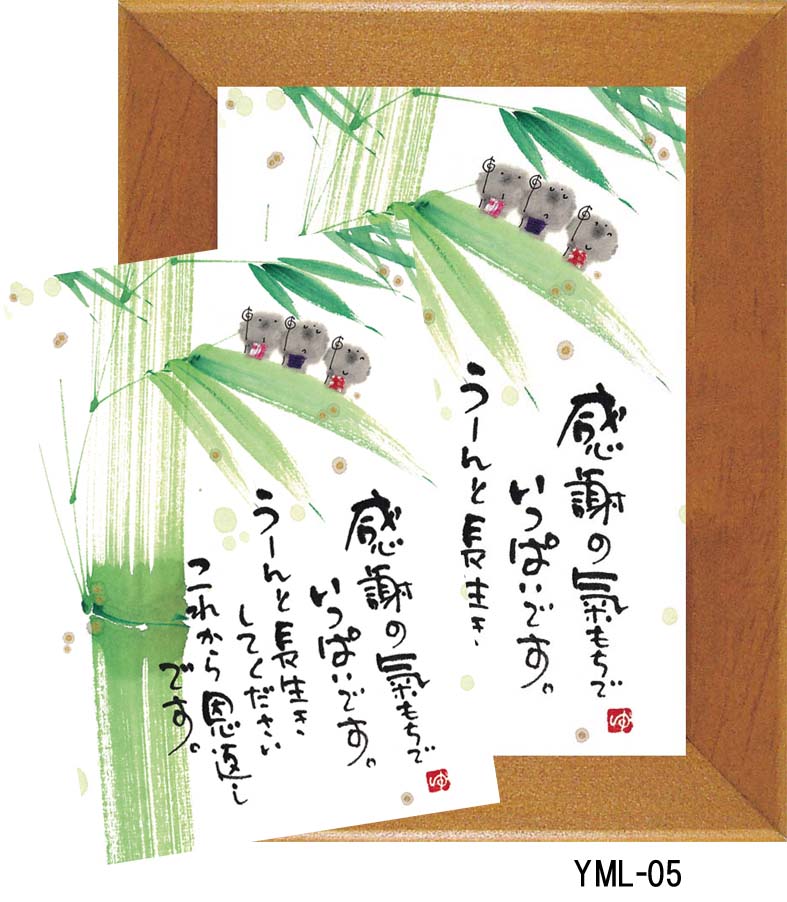 感謝の氣もちで
いっぱいです。
うーんと長生き
感謝の氣もちで
いっぱいです。
うーんと長生き
してください
これから恩返し
です。
ゆ
ゆ
YML-05